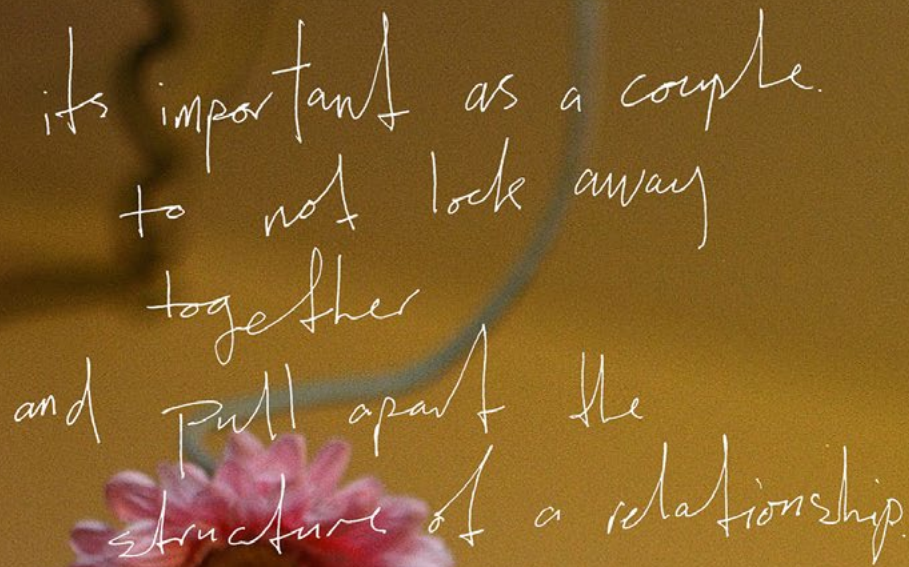 its important as a couple.
to not lock away
together
and pull apart the
structure of a relationship.